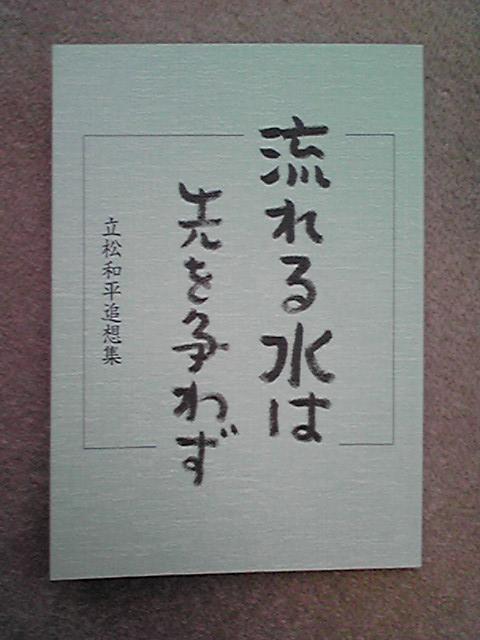 流れる水は
先を争わず
立松和平追想集